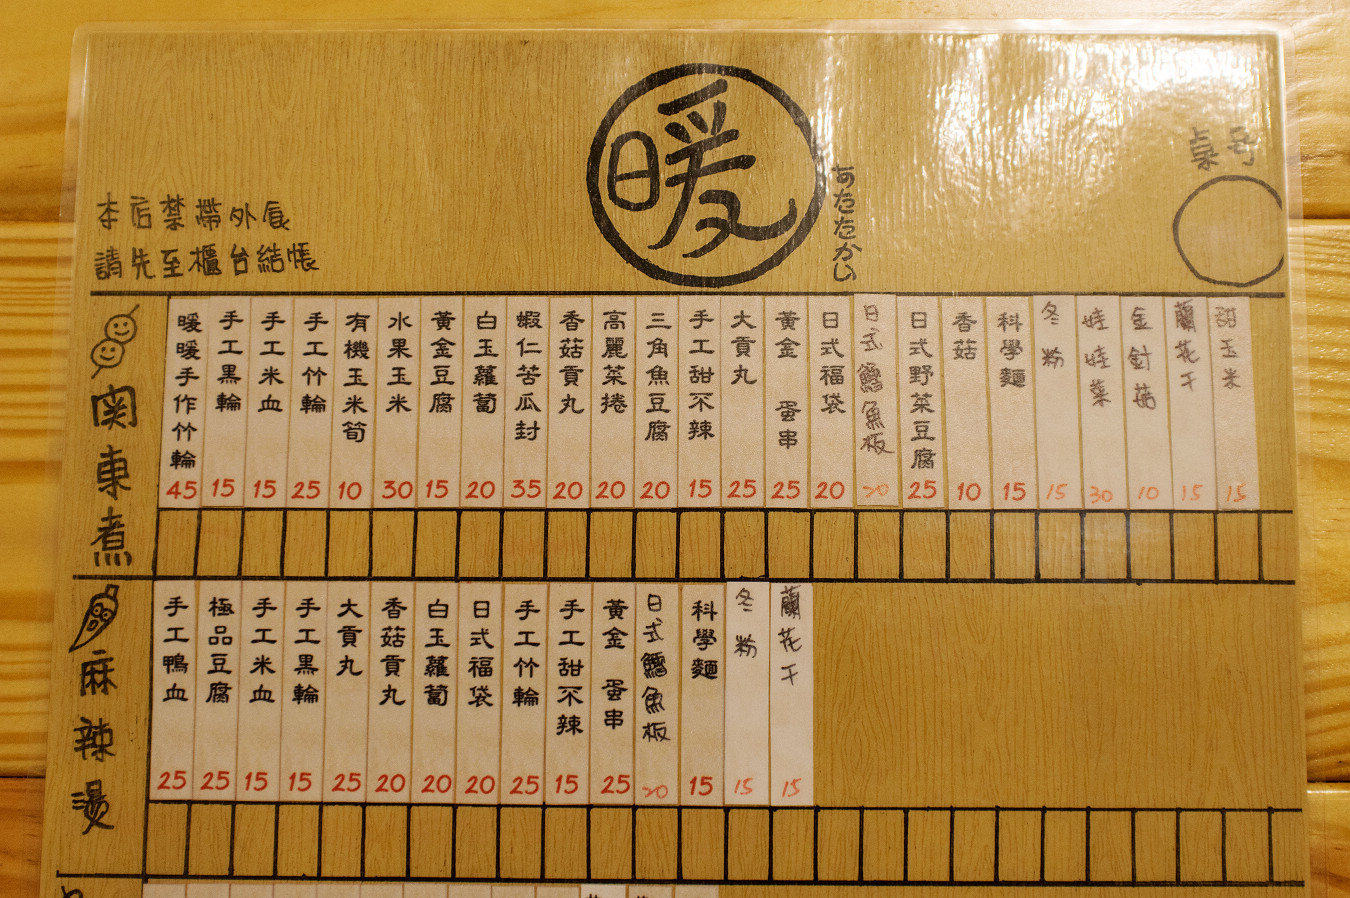 暖
あたたかい
桌号
本店禁帶外食
請先至櫃台結帳
関東煮
暖暖手作竹輪 45
手工黑輪 15
手工米血 15
手工竹輪 25
有機玉米筍 10
水果玉米 30
黃金豆腐 15
白玉蘿蔔 20
蝦仁苦瓜封 35
香菇貢丸 20
高麗菜捲 20
三角魚豆腐 20
手工甜不辣 15
大貢丸 25
黃金 蛋串 25
日式福袋 20
日式鱈魚板 20
日式野菜豆腐 25
香菇 10
科學麵 15
冬粉 15
娃娃菜 30
金針菇 10
蘭花干 15
甜玉米 15
麻辣燙
手工鴨血 25
極品豆腐 25
手工米血 15
手工黑輪 15
大貢丸 25
香菇貢丸 20
白玉蘿蔔 20
日式福袋 20
手工竹輪 25
手工甜不辣 15
黃金 蛋串 25
日式鱈魚板 20
科學麵 15
冬粉 15
蘭花干 15